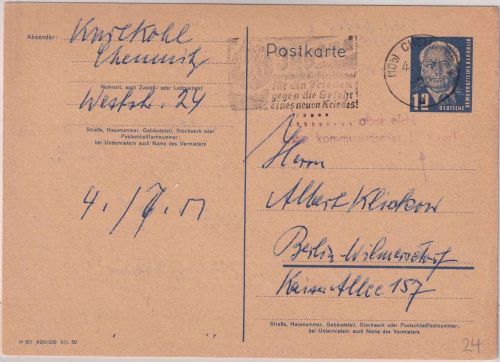 Absender:
Karl Kohl
Chemnitz
Wohnort, auch Zustell- oder Leitpostamt
Weststr. 24
Straße, Hausnummer, Gebäudeteil, Stockwerk oder
Postschließfachnummer;
bei Untermietern auch Name des Vermieters
4. / 7. 51
Postkarte
für den
gegen die Gefahr
eines neuen Krieges!
(10b)
12
DEUTSCHE
DEMOKRATISCHE REPUBLIK
aber
kommunismus
Herrn
Albert Klickow
Berlin-Wilmersdorf
Kaiser Allee 157
Straße, Hausnummer, Gebäudeteil, Stockwerk oder Postschließfachnummer;
bei Untermietern auch Name des Vermieters
24